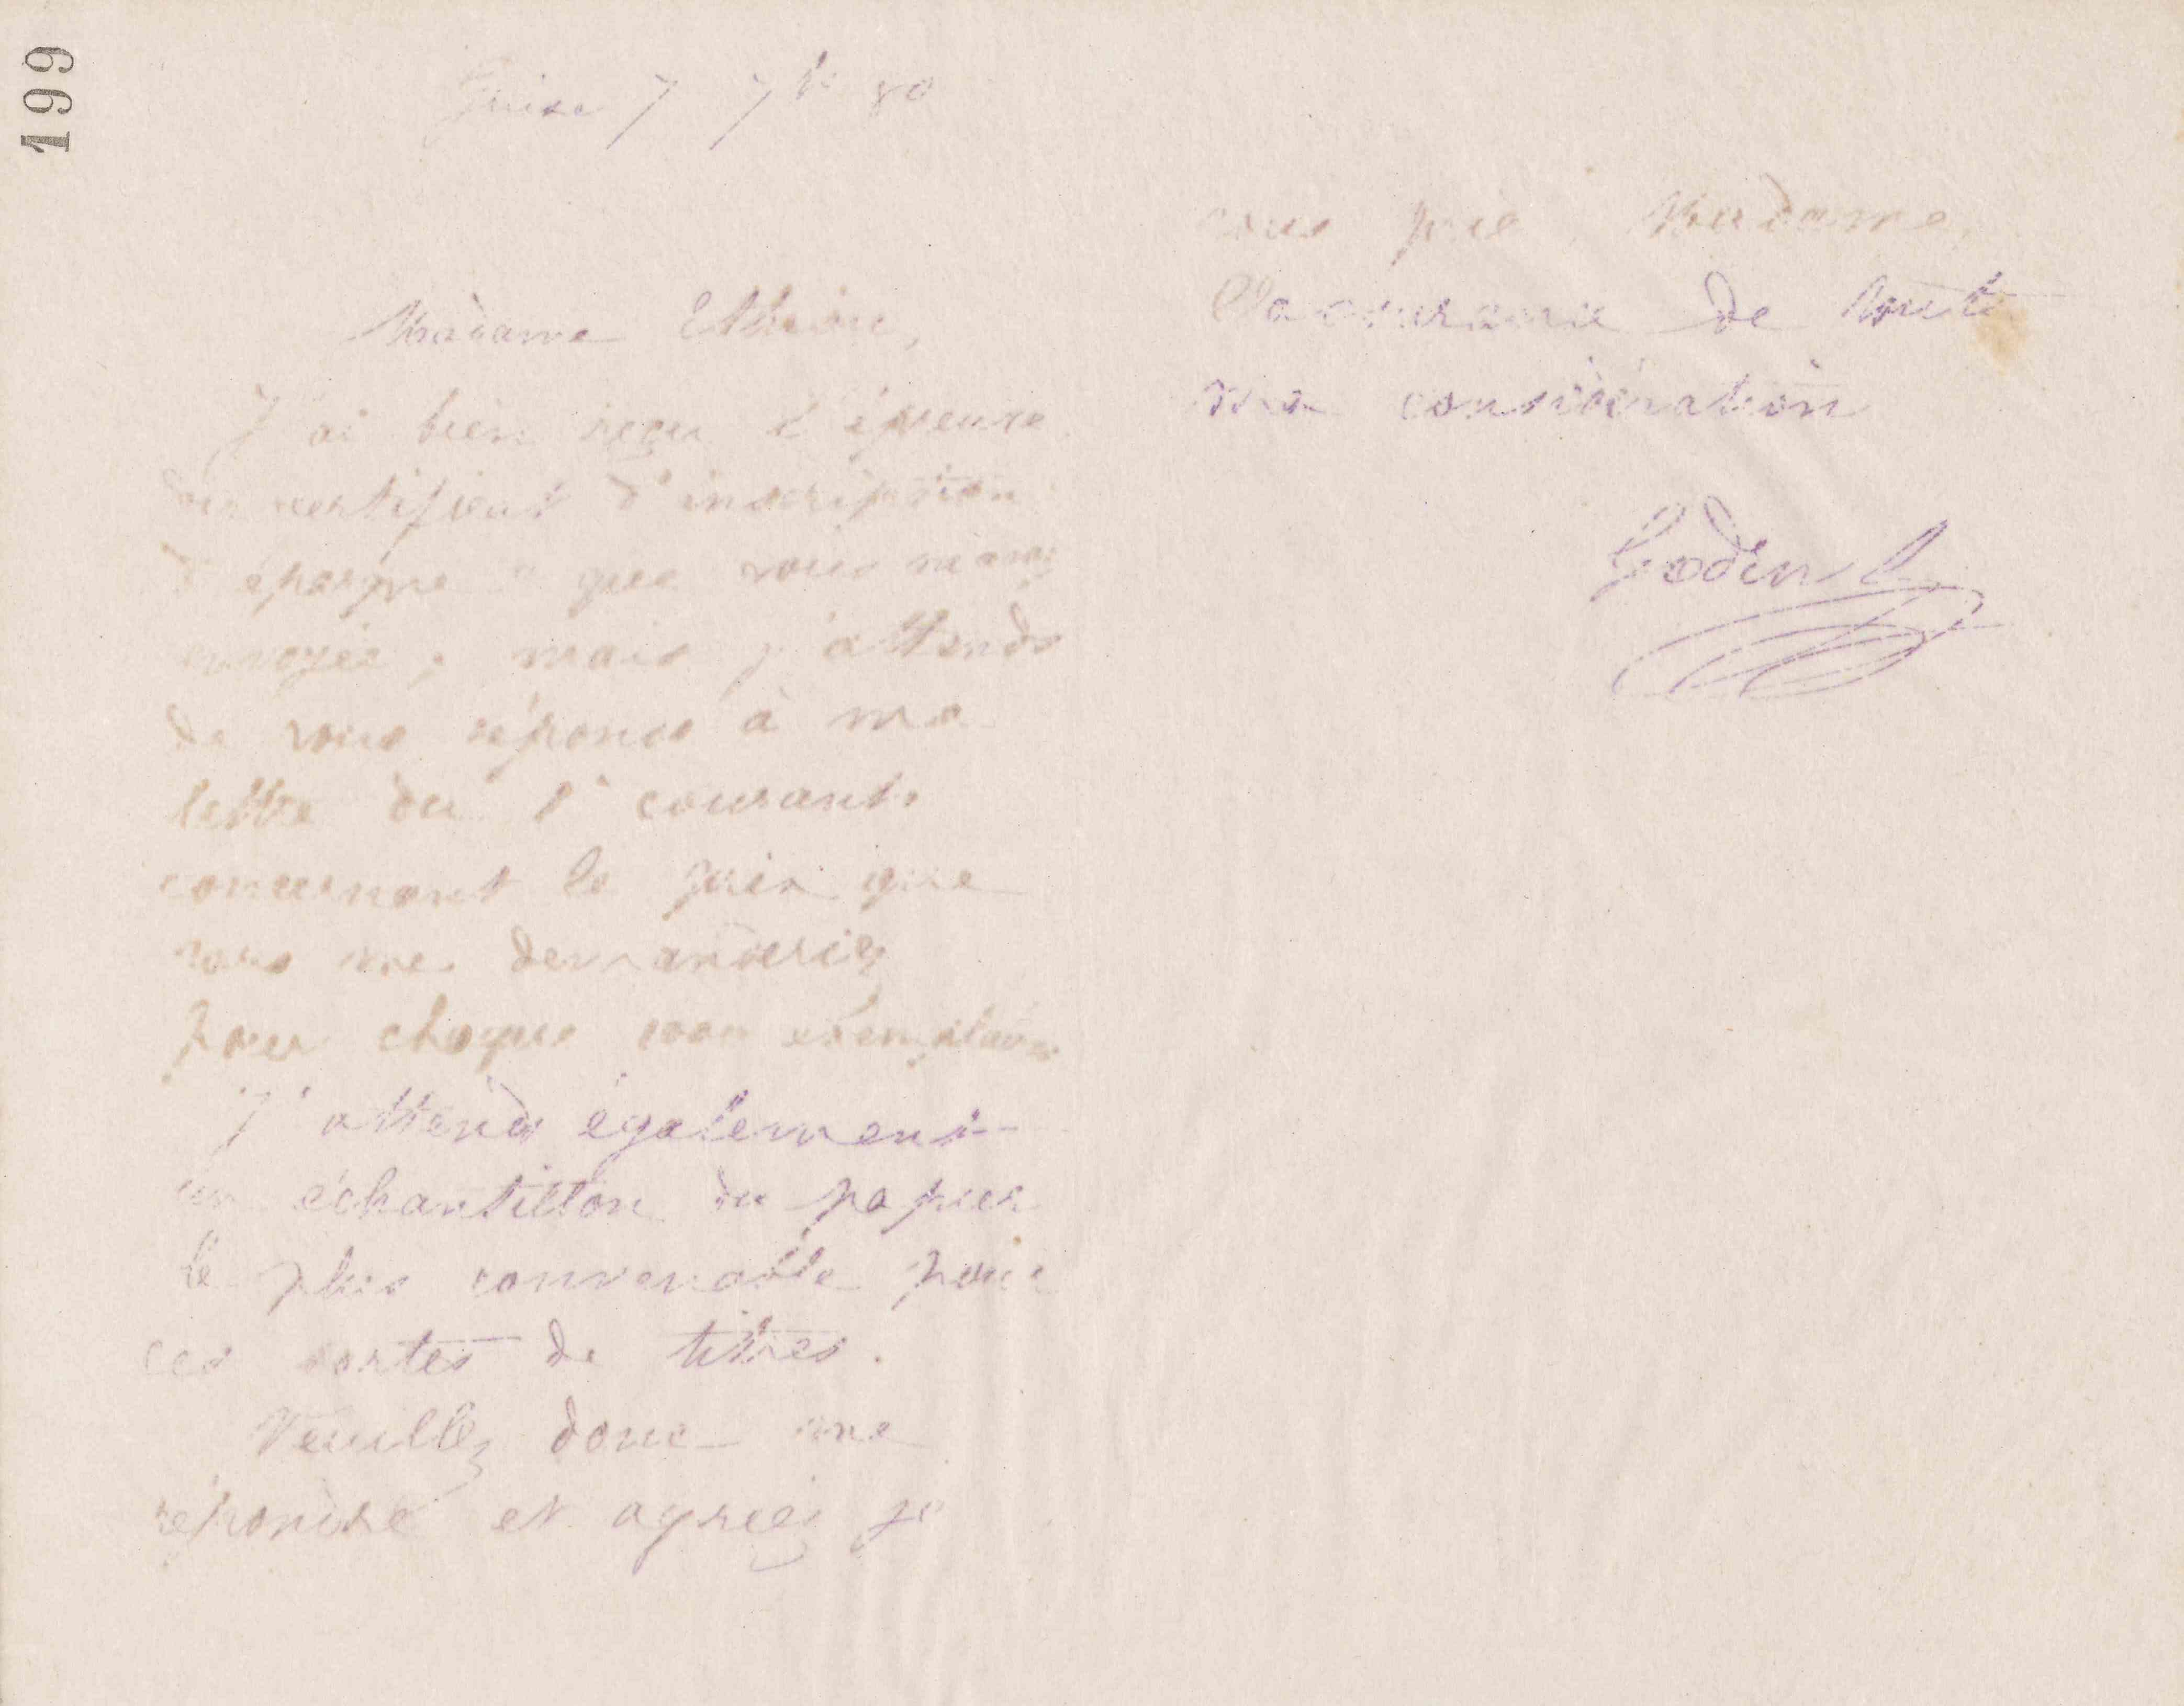 199
Guise 7 7bre 80
Madame
J'ai bien reçu l'épreuve
du certificat d'inscription
d'épargne " que vous m'avez
envoyée ; mais j'attends
de vous réponse à ma
lettre du 1er courant
concernant le prix que
vous me demanderiez
pour chaque 1000 exemplaires
J'attends également
un échantillon du papier
le plus convenable pour
ces sortes de titres.
Veuillez donc me
répondre et agréez je
vous prie, Madame,
l'assurance de toute
ma considération
Godin